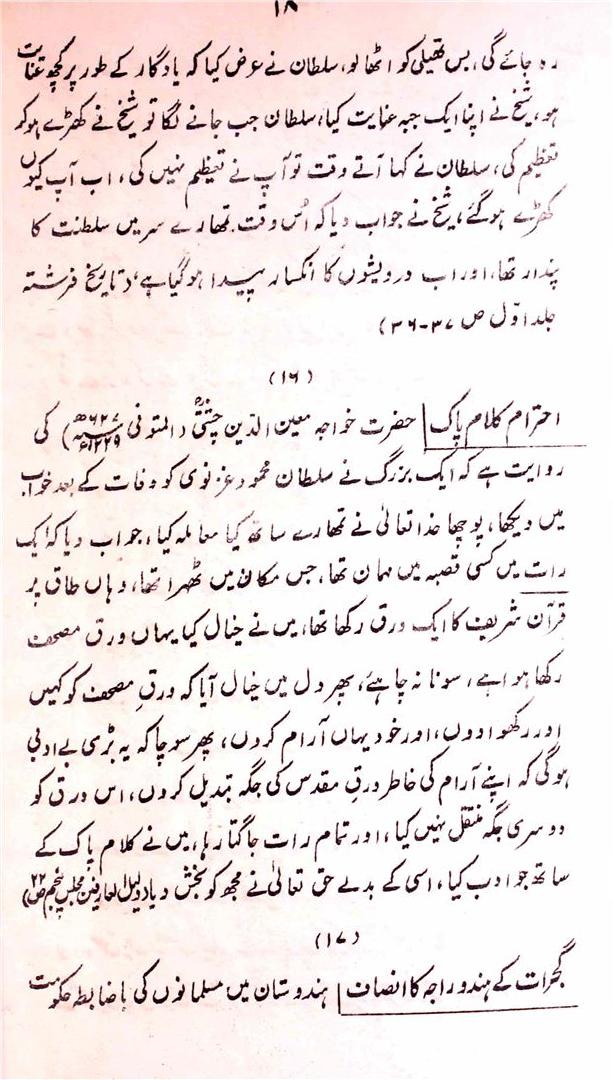 ۱۸
رہ جائے گی، بس تھیلی کو اٹھا لو، سلطان نے عرض کیا کہ یادگار کے طور پر کچھ عنایت
ہو، شیخ نے اپنا ایک جبہ عنایت کیا، سلطان جب جانے لگا تو شیخ نے کھڑے ہو کر
تعظیم کی، سلطان نے کہا آتے وقت تو آپ نے تعظیم نہیں کی، اب آپ کیوں
کھڑے ہو گئے، شیخ نے جواب دیا کہ اُس وقت تمھارے سر میں سلطنت کا
پندار تھا، اور اب درویشوں کا انکسار پیدا ہو گیا ہے، (تاریخ فرشتہ
جلد اوّل ص ۳۷-۳۶)
(۱۶)
احترام کلام پاک حضرت خواجہ معین الدین چشتیؒ (المتوفی ۶۲۷ھ ۱۲۲۹ء) کی
روایت ہے کہ ایک بزرگ نے سلطان محمود غزنوی کو وفات کے بعد خواب
میں دیکھا، پوچھا خدا تعالیٰ نے تمھارے ساتھ کیا معاملہ کیا، جواب دیا کہ ایک
رات میں کسی قصبہ میں مہمان تھا، جس مکان میں ٹھہرا تھا، وہاں طاق پر
قرآن شریف کا ایک ورق رکھا تھا، میں نے خیال کیا یہاں ورق مصحف
رکھا ہوا ہے، سونا نہ چاہئے، پھر دل میں خیال آیا کہ ورقِ مصحف کو کہیں
اور رکھوا دوں، اور خود یہاں آرام کروں، پھر سوچا کہ یہ بڑی بے ادبی
ہوگی کہ اپنے آرام کی خاطر ورقِ مقدس کی جگہ تبدیل کروں، اس ورق کو
دوسری جگہ منتقل نہیں کیا، اور تمام رات جاگتا رہا، میں نے کلام پاک کے
ساتھ جو ادب کیا، اسی کے بدلے حق تعالیٰ نے مجھ کو بخش دیا (دلیل العارفین مجلس پنجم ص ۲۲)
(۱۷)
گجرات کے ہندو راجہ کا انصاف ہندوستان میں مسلمانوں کی باضابطہ حکومت